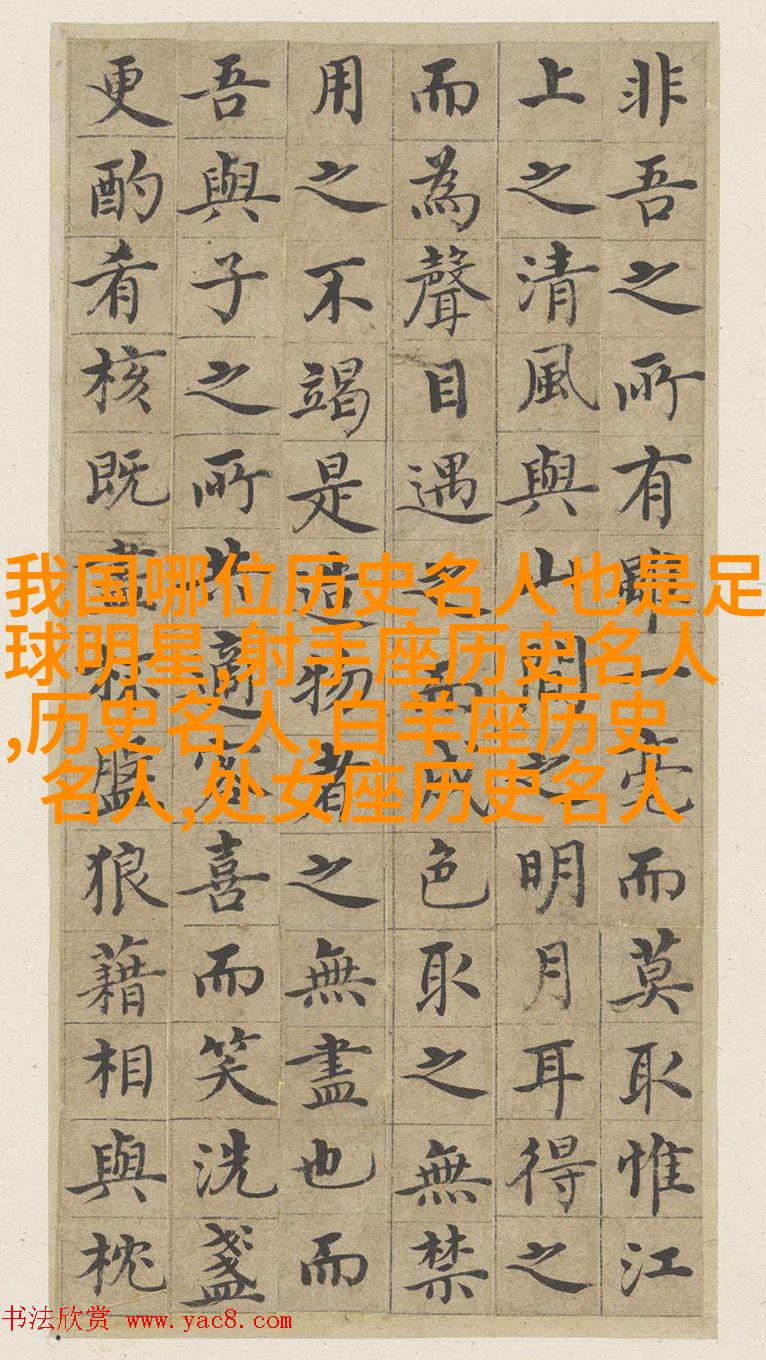 非吾之所有雖一毫而莫取惟江
上之清風與山間之明月耳得之
而為聲目遇之而成色取之無禁
用之不竭是造物者之無盡也而
吾與子之所共適客喜而笑洗盞
更酌肴核既盡杯盤狼藉相與枕
我国哪位历史名人也是足
球明星,射手座历史名人
,历史名人,白羊座历史
名人,处女座历史名人
书法欣赏 www.yac8.com